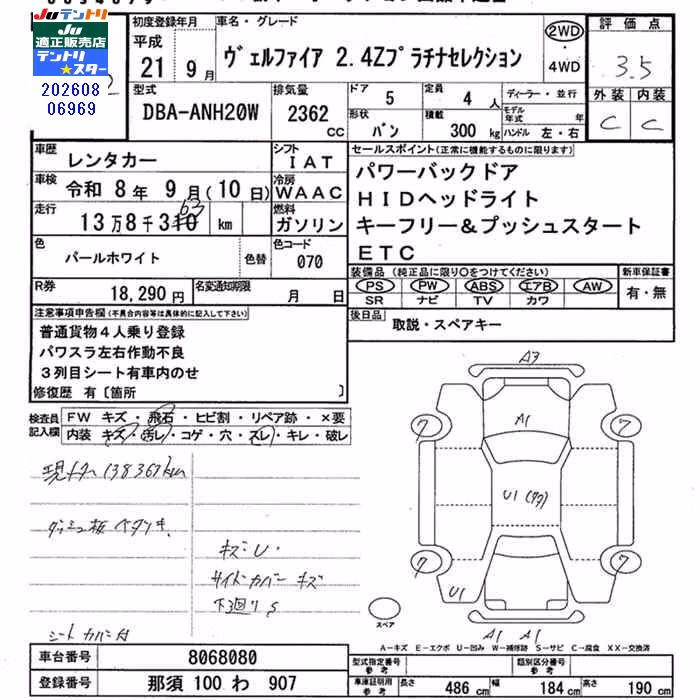 JUテントリ
JU
適正販売店
テントリ
スター
202608
06969
初度登録年月
平成
21年9月
車名・グレード
ヴェルファイア 2.4Zプラチナセレクション
2WD
・
4WD
評価点
3.5
型式
DBA-ANH20W
排気量
2362
CC
ドア
5
定員
4人
形状
バン
積載
300kg
ディーラー・並行
モデル年式 年
ハンドル 左・右
外装 内装
C C
車歴
レンタカー
シフト
IAT
車検
令和 8年 9月(10日)
冷房
WAAC
走行
13万8千3 63 km
燃料
ガソリン
色
パールホワイト
色替
色コード
070
R券
18,290円
名変通知期限
月 日
セールスポイント(正常に機能するものに限ります)
パワーバックドア
HIDヘッドライト
キーフリー&プッシュスタート
ETC
装備品(純正品に限り○をつけてください)
PS PW ABS エアB AW
SR ナビ TV カワ
新車保証書
有・無
後日品
取説・スペアキー
注意事項申告欄(不具合内容等は具体的に記入して下さい)
普通貨物4人乗り登録
パワスラ左右作動不良
3列目シート有車内のせ
修復歴 有〔箇所 〕
検査員
記入欄
FW キズ・飛石・ヒビ割・リペア跡・×要
内装 キズ・汚レ・コゲ・穴・スレ・キレ・破レ
現メーター138367km
ダッシュ板ベタツキ
キズ・U・
サイドカバーキズ
下廻りS
シートカバー付
A3
A1
7
7
U1(ワク)
7
7
U1
A1 A1
スペア
A−キズ E−エクボ U−凹み W−補修跡 S−サビ C−腐食 XX−交換済
車台番号
8068080
登録番号
那須 100 わ 907
型式指定番号
参考
類別区分番号
参考
車庫証明用
参考
長さ 486cm
幅 184cm
高さ 190cm